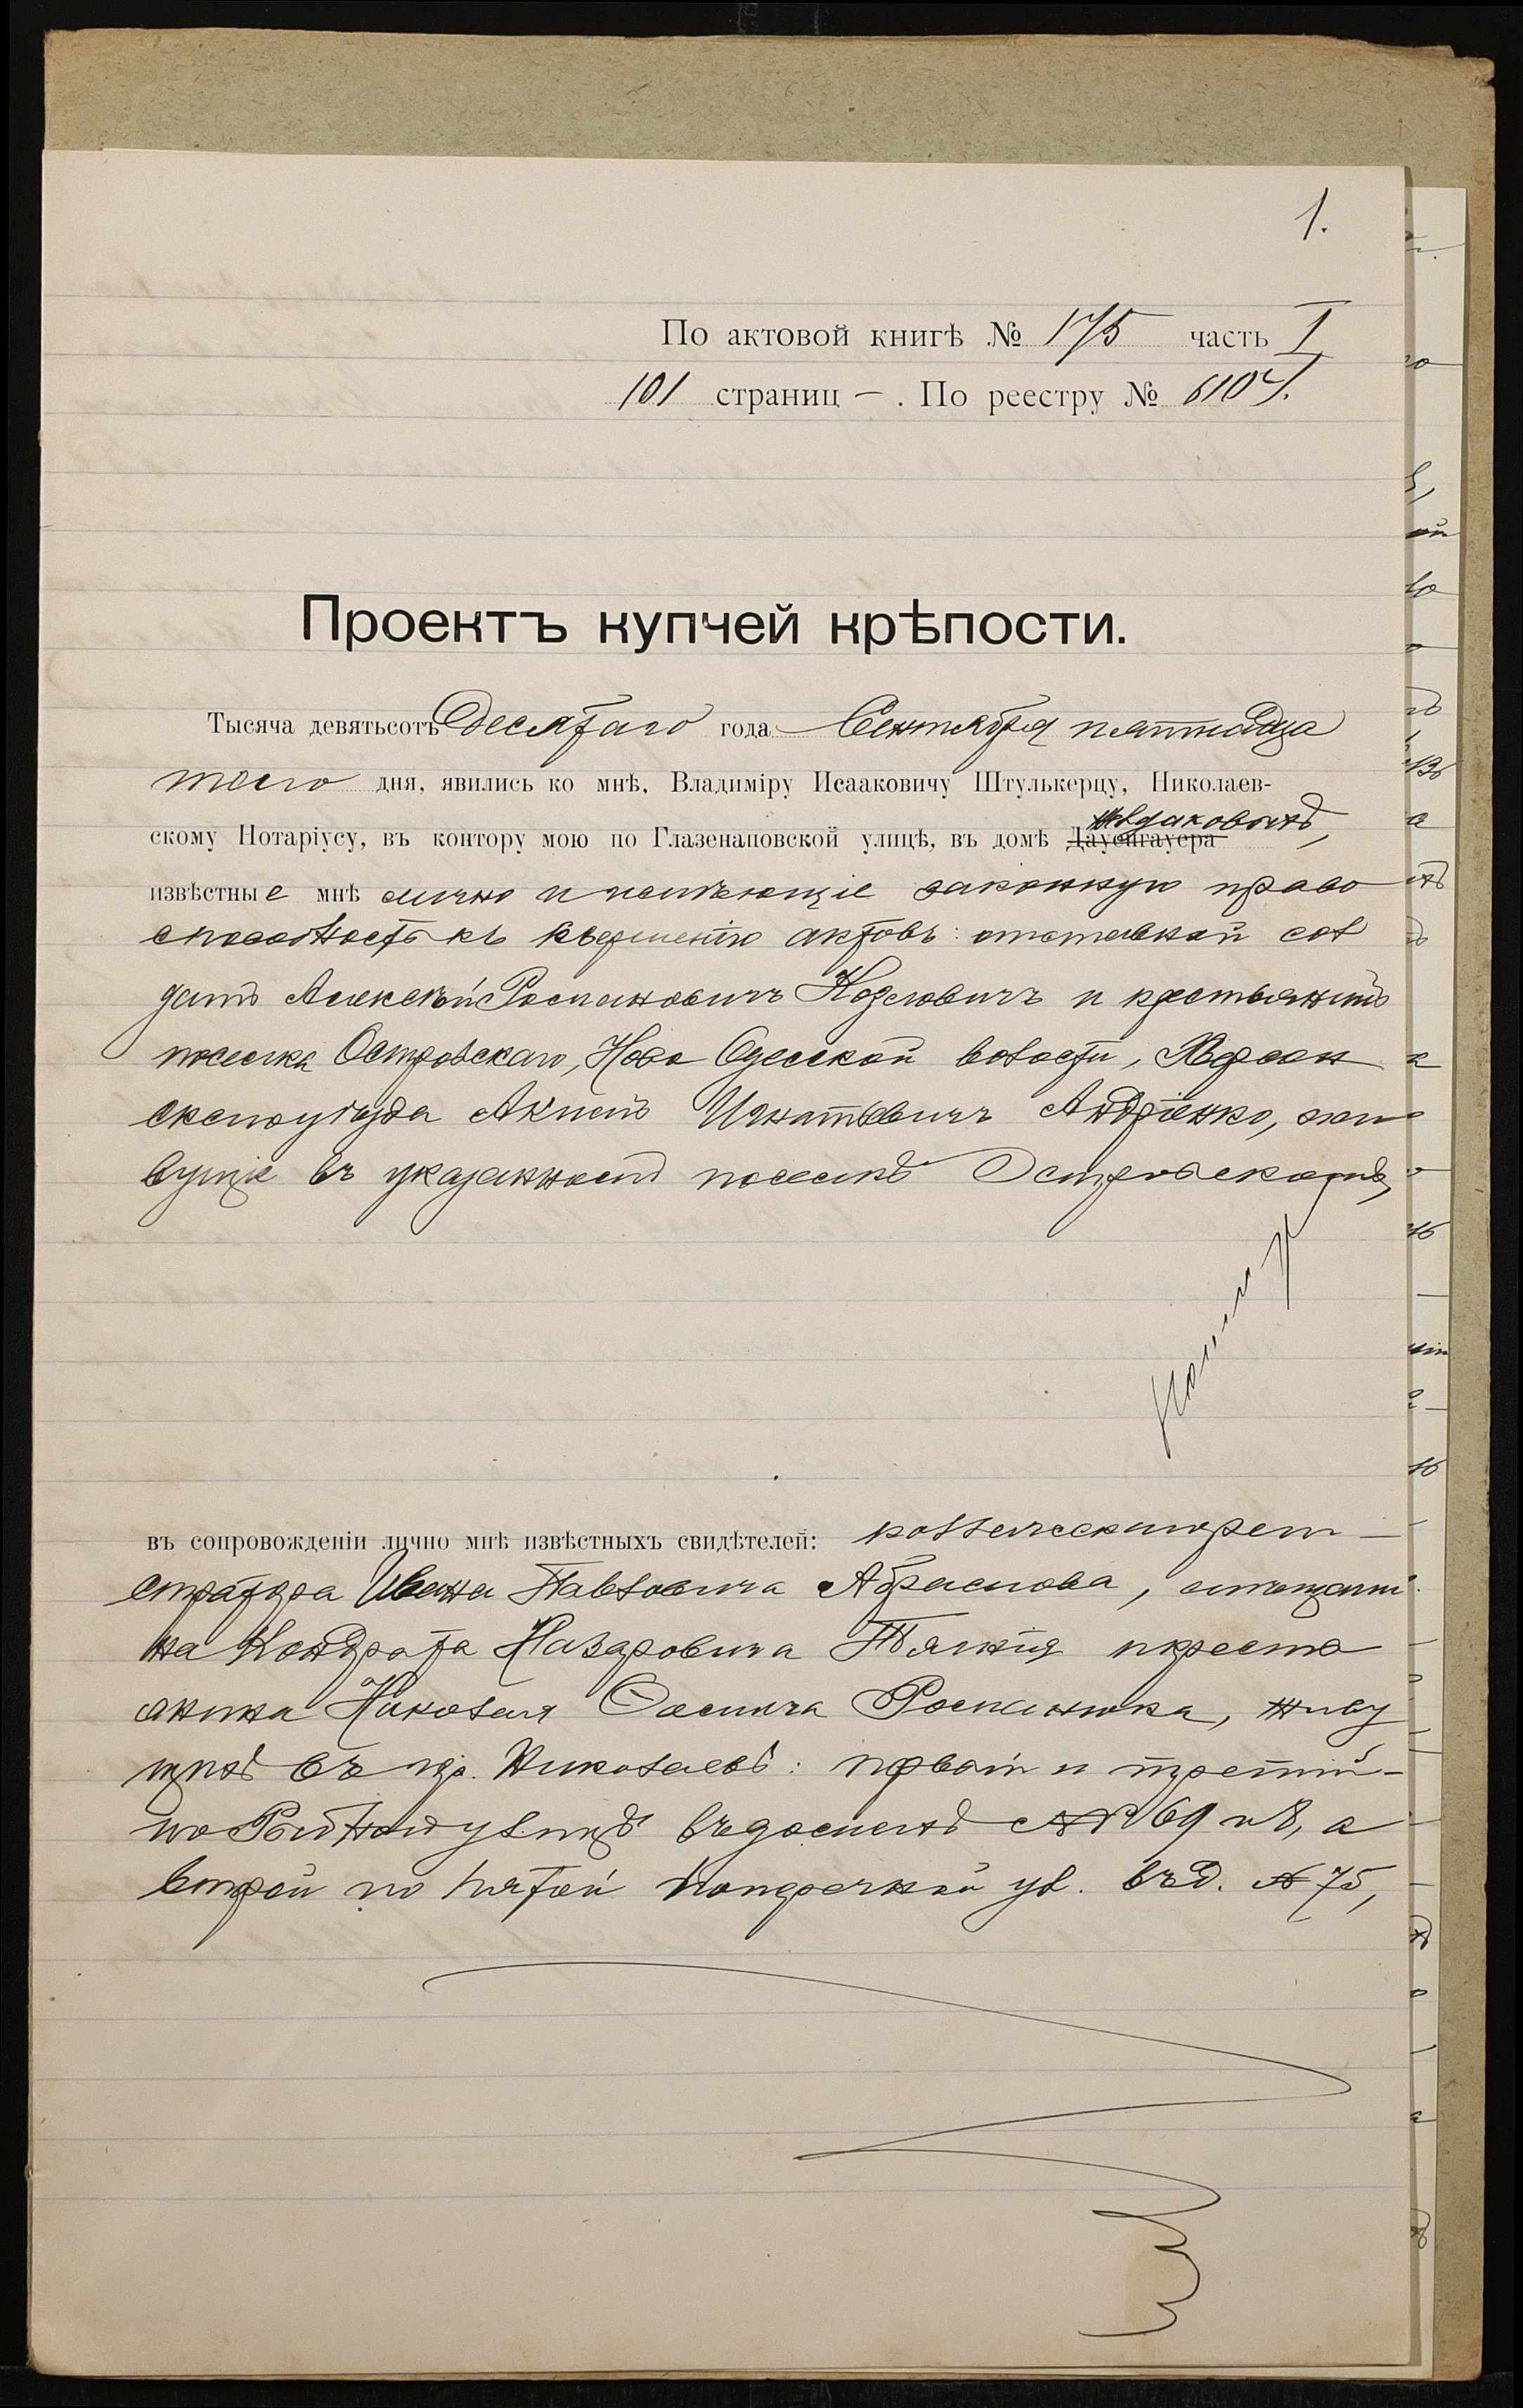 1.
По актовой книгѣ № 175 часть I
101 страниц — . По реестру № 6104.
Проектъ купчей крѣпости.
Тысяча девятьсотъ десятаго года Сентября пятнадца
таго дня, явились ко мнѣ, Владиміру Исааковичу Штулькерцу, Николаев-
скому Нотаріусу, въ контору мою по Глазенаповской улицѣ, въ домѣ Даусенгауера
извѣстные мнѣ лично и имѣющіе законную право
способность къ совершенію актовъ: отставной сол
датъ Алексѣй Романовичъ Козловичъ и крестьянинъ
поселка Островскаго, Ново Одесской волости, Херсон
скаго уѣзда Акимъ Игнатьевичъ Андріенко, жи
вущіе въ указанномъ поселкѣ Островскомъ,
въ сопровожденіи лично мнѣ извѣстныхъ свидѣтелей: коллежскаго реги
стратора Ивана Павловича Абрамова, мѣщани
на Кондрата Назаровича и кресть
янина Николая Романюка, живу
щихъ въ гор. Николаевѣ: первый и третій-
по Рыбной улицѣ въ домахъ №№ 69 и 8, а
второй по Пятой Поперечной ул. въ д. № 75,